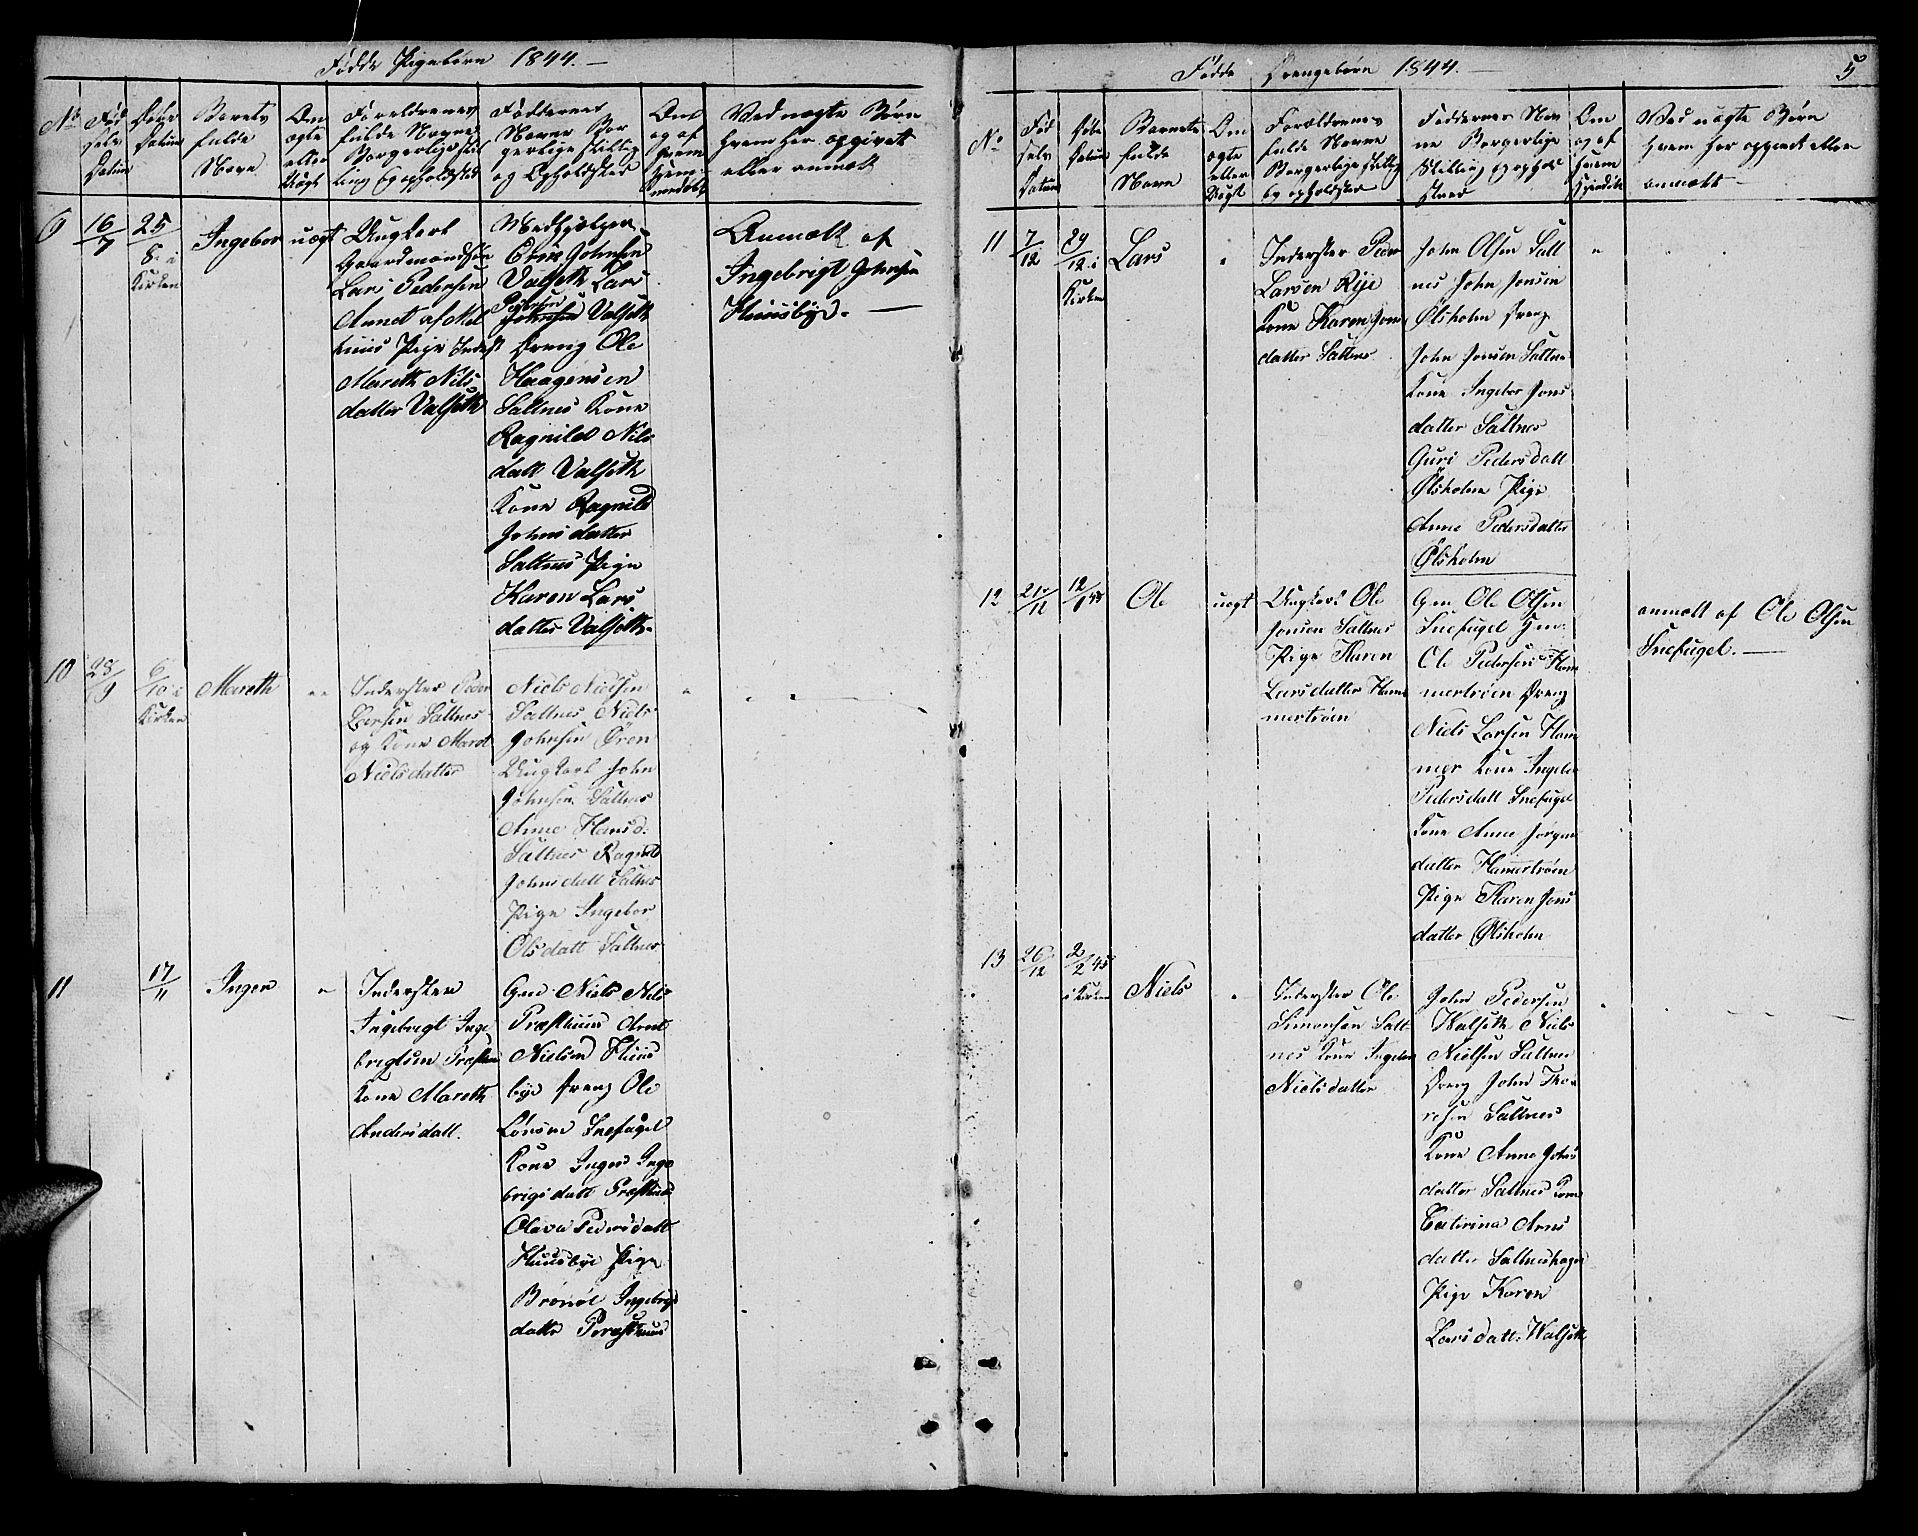 Fødde Pigebørn 1844.
No
Fød
sels
Datum
Døbe
Datum
Barnets
fulde
Navn
Om
ægte
eller
Uægt
Foreldrenes
fulde Navne
Borgerlige stil
ling og opholdsted
Faddernes
Navne Bor
gerlige stilling
og Opholdsted
Om
og af
hvem
hjem
Ved uægte Børn
hvem har opgivet
eller anmelt
9
16/7
25/8 i
Kirken
Ingebor
uægt
Ungkarl
Gaardmandsøn
Lars Pedersen
Annet af Mel
huus Pige Inderst
Mareth Nils
datter Valseth
Medhjelper
Erik Johnsen
Valseth Lars
Pedersen
Johnsen Valseth
Dreng Ole
Haagensen
Saltnes Kone
Ragnild Nils
datt Valseth
Kone Ragnild
Johnsdatter
Saltnes Pige
Karen Lars
datter Valseth
Anmelt af
Ingebrigt Johnsen
Huusbye.
10
28/9
6/10 i
Kirken
Mareth
Inderster Peder
Larsen Saltnes
og Kone Maret
Nielsdatter
Niels Nielsen
Saltnes Niels
Johnsen Øren
Ungkarl John
Johnsen Saltnes
Anne Hansd:
Saltnes Ragnild
Johnsdatt Saltnes
Pige Ingebor
Olsdatt Saltnes
11
17/11
Inger
Inderster
Ingebrigt Inge
brigtsen Præsthuus
Kone Mareth
Andersdatt.
Gmd Niels Nils
Præsthuus Arnt
Nielsen Huus
bye Dreng Ole
Larsen Snefugel
Kone Inger Inge
brigtsdatt Præsthuus
Olava Pedersdatt
Huusbye Pige
Brønøl Ingebrigt
datter Præsthuus
Fødde Drengebørn 1844.
5
No
Fød
sels
Datum
Døbe
Datum
Barnets
fulde
Navn
Om
ægte
eller
Uægt
Forældrenes
fulde Navne
Borgerlige stilling
og opholdsted
Faddernes Nav
ne Borgerlige
Stilling og ophold
sted
Om
og af
hvem
Ved uægte Børn
hvem har opgivet eller
anmelt
11
7/12
29/12 i
Kirken
Lars
Inderster Peder
Larsen Rije
Kone Karen Jons
datter Saltnes
John Olsen Salt
nes John Jonsen
Ølsholm Dreng
John Jonsen Saltnes
Kone Ingebor Jons
datter Saltnes
Guri Pedersdatt
Ølsholm Pige
Anne Pedersdatter
Ølsholm
12
12/1 45
Ole
uægt
Ungkarl Ole
Jonsen Saltnes
Pige Karen
Larsdatter Ham
mertrøen
Gm Ole Olsen
Snefugel Gm:
Ole Pedersen Ham
mertrøen Dreng
Niels Larsen Ham
mer Kone Ingebor
Pedersdatt Snefugel
Kone Anne Jørgen
datter Hamertrøen
Pige Karen Jons
datter Ølsholm
anmelt af Ole Olsen
Snefugel.
13
26/12
2/2 45
i Kirken
Niels
Inderster Ole
Simonsen Salt
nes Kone Ingebor
Nielsdatter
John Pedersen
Walseth Niels
Nielsen Saltnes
Dreng John Thor
resen Saltnes
Kone Anne Johns
datter Saltnes Kone
Catrina Arns
datter Saltneshagen
Pige Karen
Larsdatt: Walseth